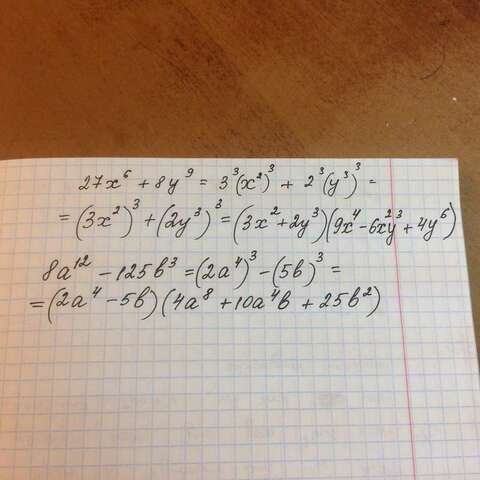 27x⁶ + 8y⁹ = 3³(x²)³ + 2³(y³)³ =
= (3x²)³ + (2y³)³ = (3x² + 2y³)(9x⁴ - 6x²y³ + 4y⁶)
8a¹² - 125b³ = (2a⁴)³ - (5b)³ =
= (2a⁴ - 5b)(4a⁸ + 10a⁴b + 25b²)